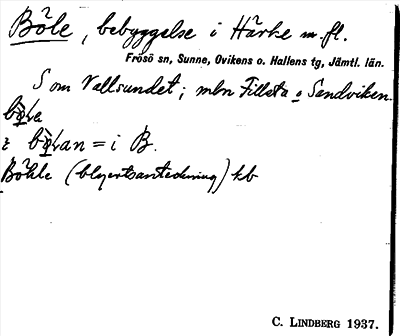 Böle, bebyggelse i Härke m. fl.
Frösö sn, Sunne, Ovikens o. Hallens tg, Jämtl. län.
S om Vallsundet; mbn Fillsta o Sandviken.
= i B.
Böhle (blyertsanteckning) kb
C. LINDBERG 1937.